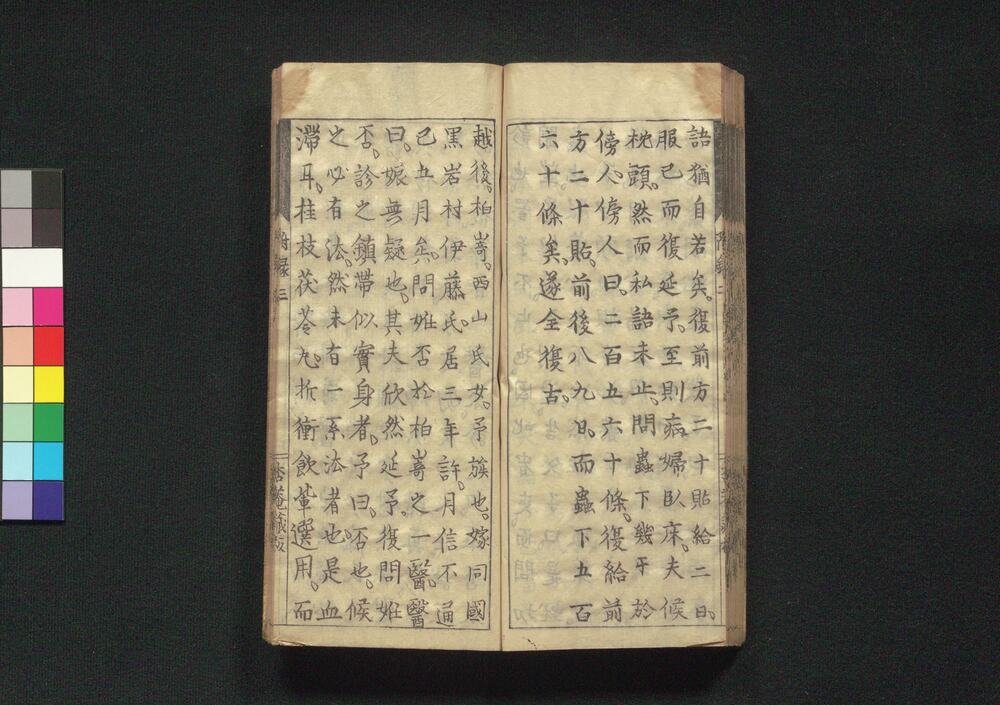 語猶自若矣。復前方三十貼給二日。
服已而復延予。至則病婦臥床。夫候
枕頭。然而私語未止。問蟲下幾于於
傍人。傍人曰。二百五六十條。復給前
方二十貼。前後八九日。而蟲下五百
六十條矣。遂全復古。
越後。柏嵜。西山氏女。予族也。嫁同國
黑岩村伊藤氏。居三年許。月信不通
已五月矣。問姙否於柏嵜之一醫。醫
曰。娠無疑也。其夫欣然延予。復問姙
否。診之鎮帶似實身者。予曰。否也。候
之必有法。然未有一系法者也。是血
滯耳。桂枝茯苓丸。折衝飲輩選用。而
附録 三
杏菴藏版